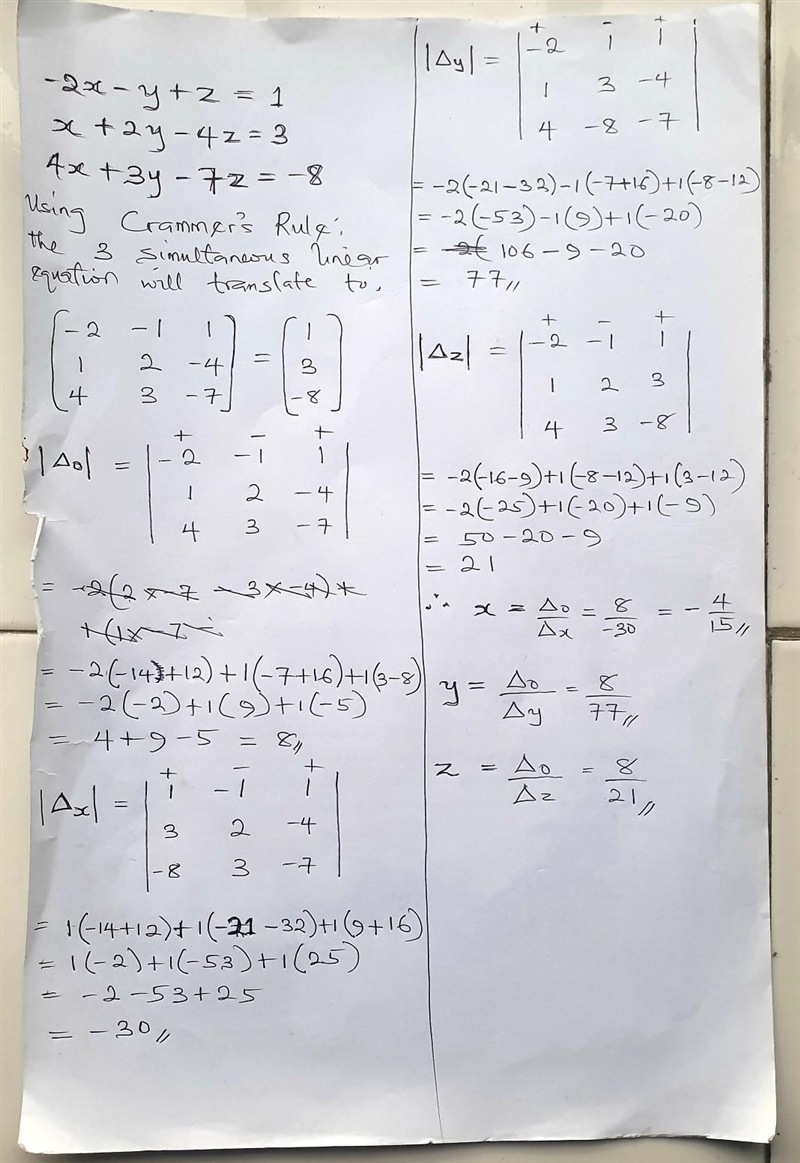 -2x - y + z = 1
x + 2y - 4z = 3
4x + 3y - 7z = -8
Using Crammer's Rule;
the 3 simultaneous linear
equation will translate to,
(-2 -1 1) = (1)
(1 2 -4) (3)
(4 3 -7) (-8)
+ - +
|Δ0| = |-2 -1 1|
|1 2 -4|
|4 3 -7|
= -2(2 x -7 - 3 x -4) +
+(1x -7 -
= -2(-14+12) + 1(-7+16) + 1(3-8)
= -2(-2) + 1(9) + 1(-5)
= 4 + 9 - 5 = 8//
+ - +
|Δx| = |1 -1 1|
|3 2 -4|
|-8 3 -7|
= 1(-14+12) + 1(-21-32) + 1(9+16)
= 1(-2) + 1(-53) + 1(25)
= -2 - 53 + 25
= -30//
+ - +
|Δy| = |-2 1 1|
|1 3 -4|
|4 -8 -7|
= -2(-21-32) - 1(-7+16) + 1(-8-12)
= -2(-53) - 1(9) + 1(-20)
= -2( 106 - 9 - 20
= 77//
+ - +
|Δz| = |-2 -1 1|
|1 2 3|
|4 3 -8|
= -2(-16-9) + 1(-8-12) + 1(3-12)
= -2(-25) + 1(-20) + 1(-9)
= 50 - 20 - 9
= 21
∴ x = Δ0/Δx = 8/-30 = -4/15//
y = Δ0/Δy = 8/77//
z = Δ0/Δz = 8/21//